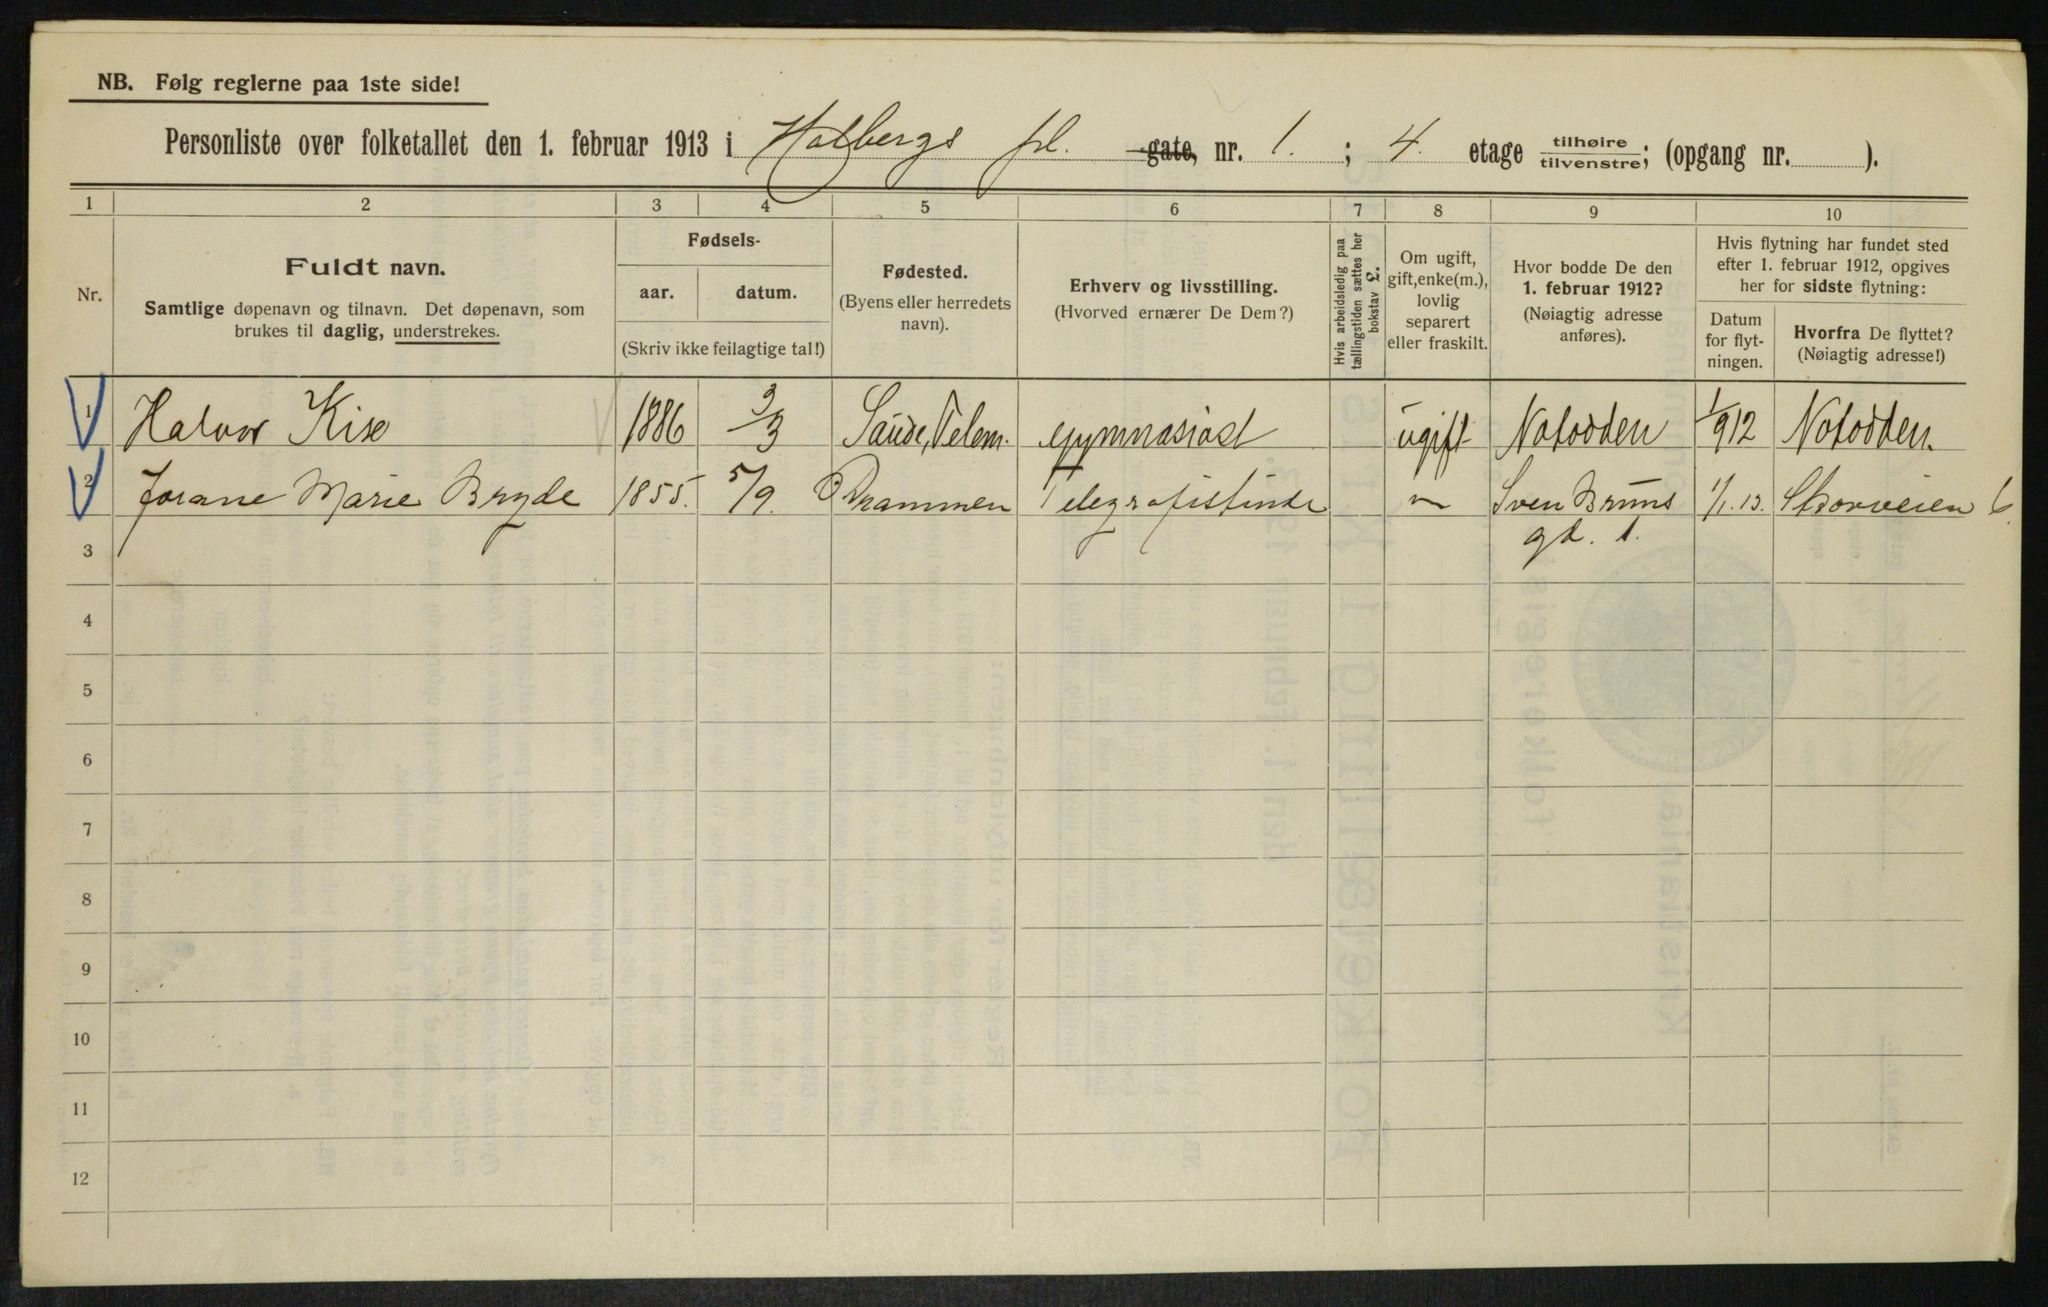 NB. Følg reglerne paa 1ste side!
Personliste over folketallet den 1. februar 1913 i Holbergs pl. gate, nr. 1. ; 4. etage tilhøire tilvenstre; (opgang nr. ).
1 2 3 4 5 6 7 8 9 10
Nr.
Fuldt navn.
Samtlige døpenavn og tilnavn. Det døpenavn, som
brukes til daglig, understrekes.
Fødsels-
aar. datum.
(Skriv ikke feilagtige tal!)
Fødested.
(Byens eller herredets
navn).
Erhverv og livsstilling.
(Hvorved ernærer De Dem?)
Hvis arbeidsledig paa
tællingstiden sættes her
bokstav L.
Om ugift,
gift, enke(m.),
lovlig
separert
eller fraskilt.
Hvor bodde De den
1. februar 1912?
(Nøiagtig adresse
anføres).
Hvis flytning har fundet sted
efter 1. februar 1912, opgives
her for sidste flytning:
Datum
for flyt-
ningen.
Hvorfra De flyttet?
(Nøiagtig adresse!)
1 Halvor Kise 1886 3/3 Saude, Telem. Gymnasiast ugift Notodden 1/9 12 Notodden.
2 Marie Bryde 1855. 5/9. Drammen Telegrafistinde " Sven Bruns 1/1. 13. Skovveien 6.
gd. 1.
3
4
5
6
7
8
9
10
11
12